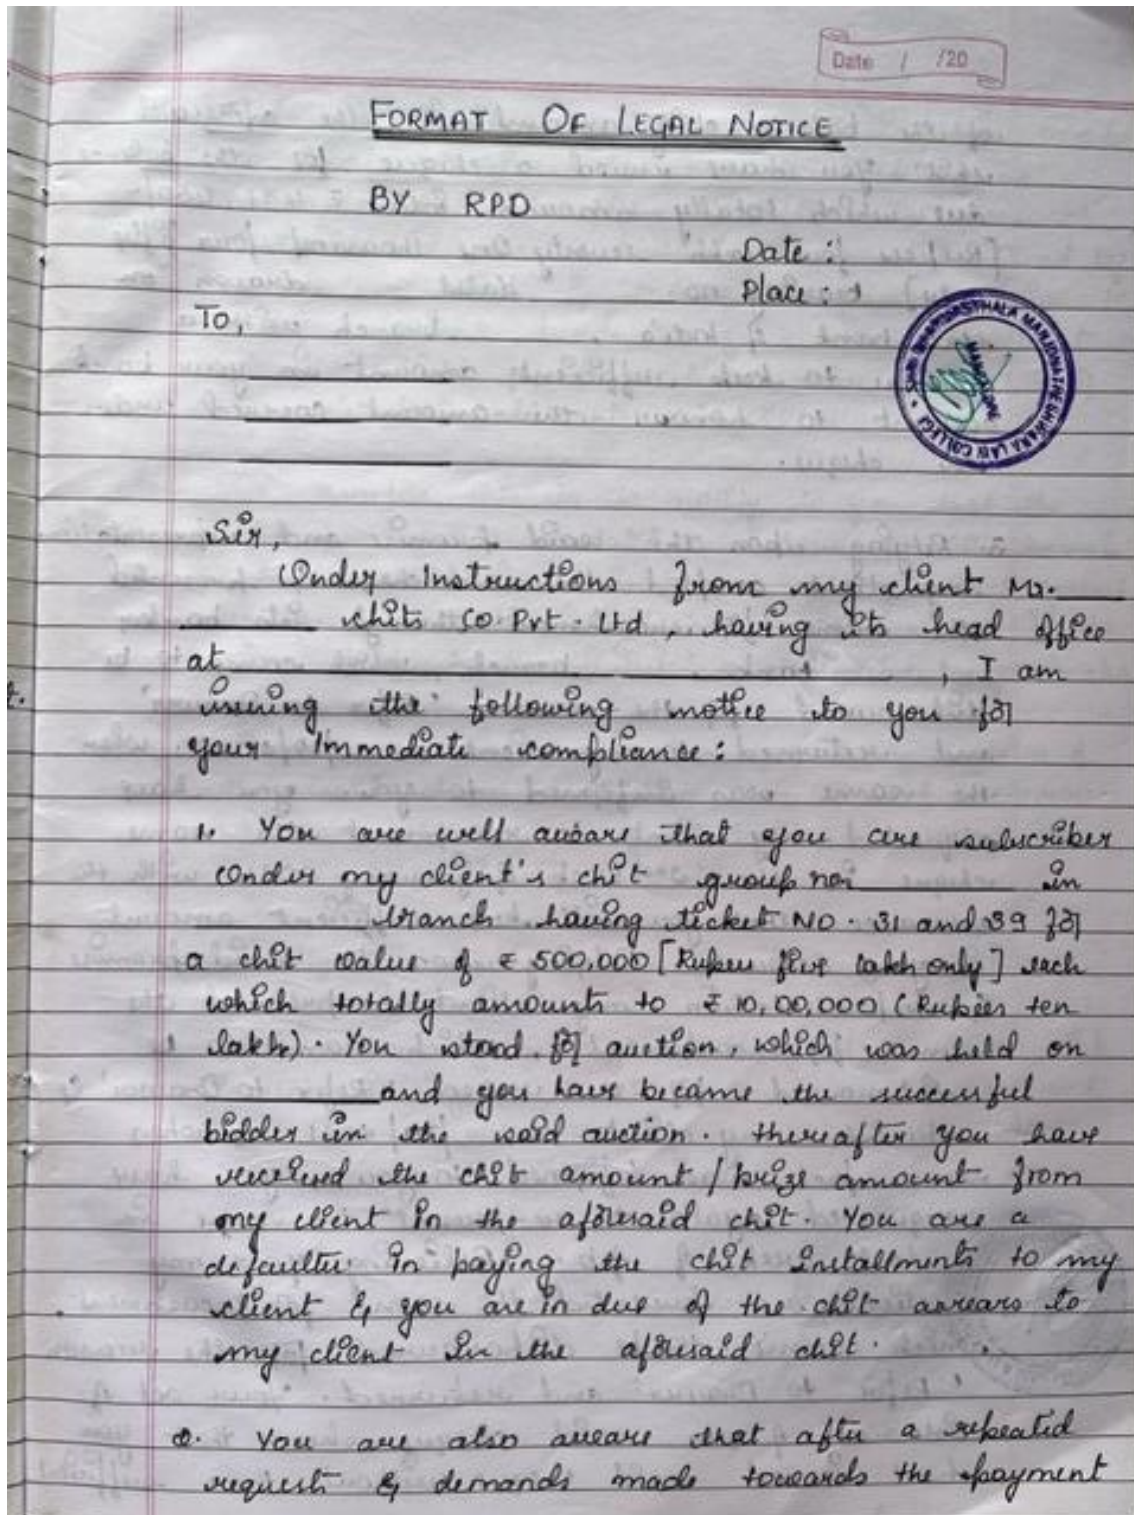 Date / /20
FORMAT OF LEGAL NOTICE
BY RPD
Date :
Place :
To,
SHRI DHARMASTHALA MANJUNATHESHWARA LAW COLLEGE
MANGALORE
Sir,
Under Instructions from my client Mr. ____
____ chits Co. Pvt. Ltd, having its head office
at ____ ____, I am
issuing the following notice to you for
your Immediate compliance:
1. You are well aware that you are subscriber
Under my client's chit group no: ____ in
____ branch having ticket No. 31 and 39 for
a chit value of ₹ 500,000 [Rupees five lakh only] each
which totally amounts to ₹ 10,00,000 (Rupees ten
lakh). You stood for auction, which was held on
____ and you have became the successful
bidder in the said auction. thereafter you have
received the chit amount / prize amount from
my client in the aforesaid chit. You are a
defaulter in paying the chit Installments to my
client & you are in due of the chit arrears to
my client In the aforesaid chit.
2. You are also aware that after a repeated
requests & demands made towards the payment